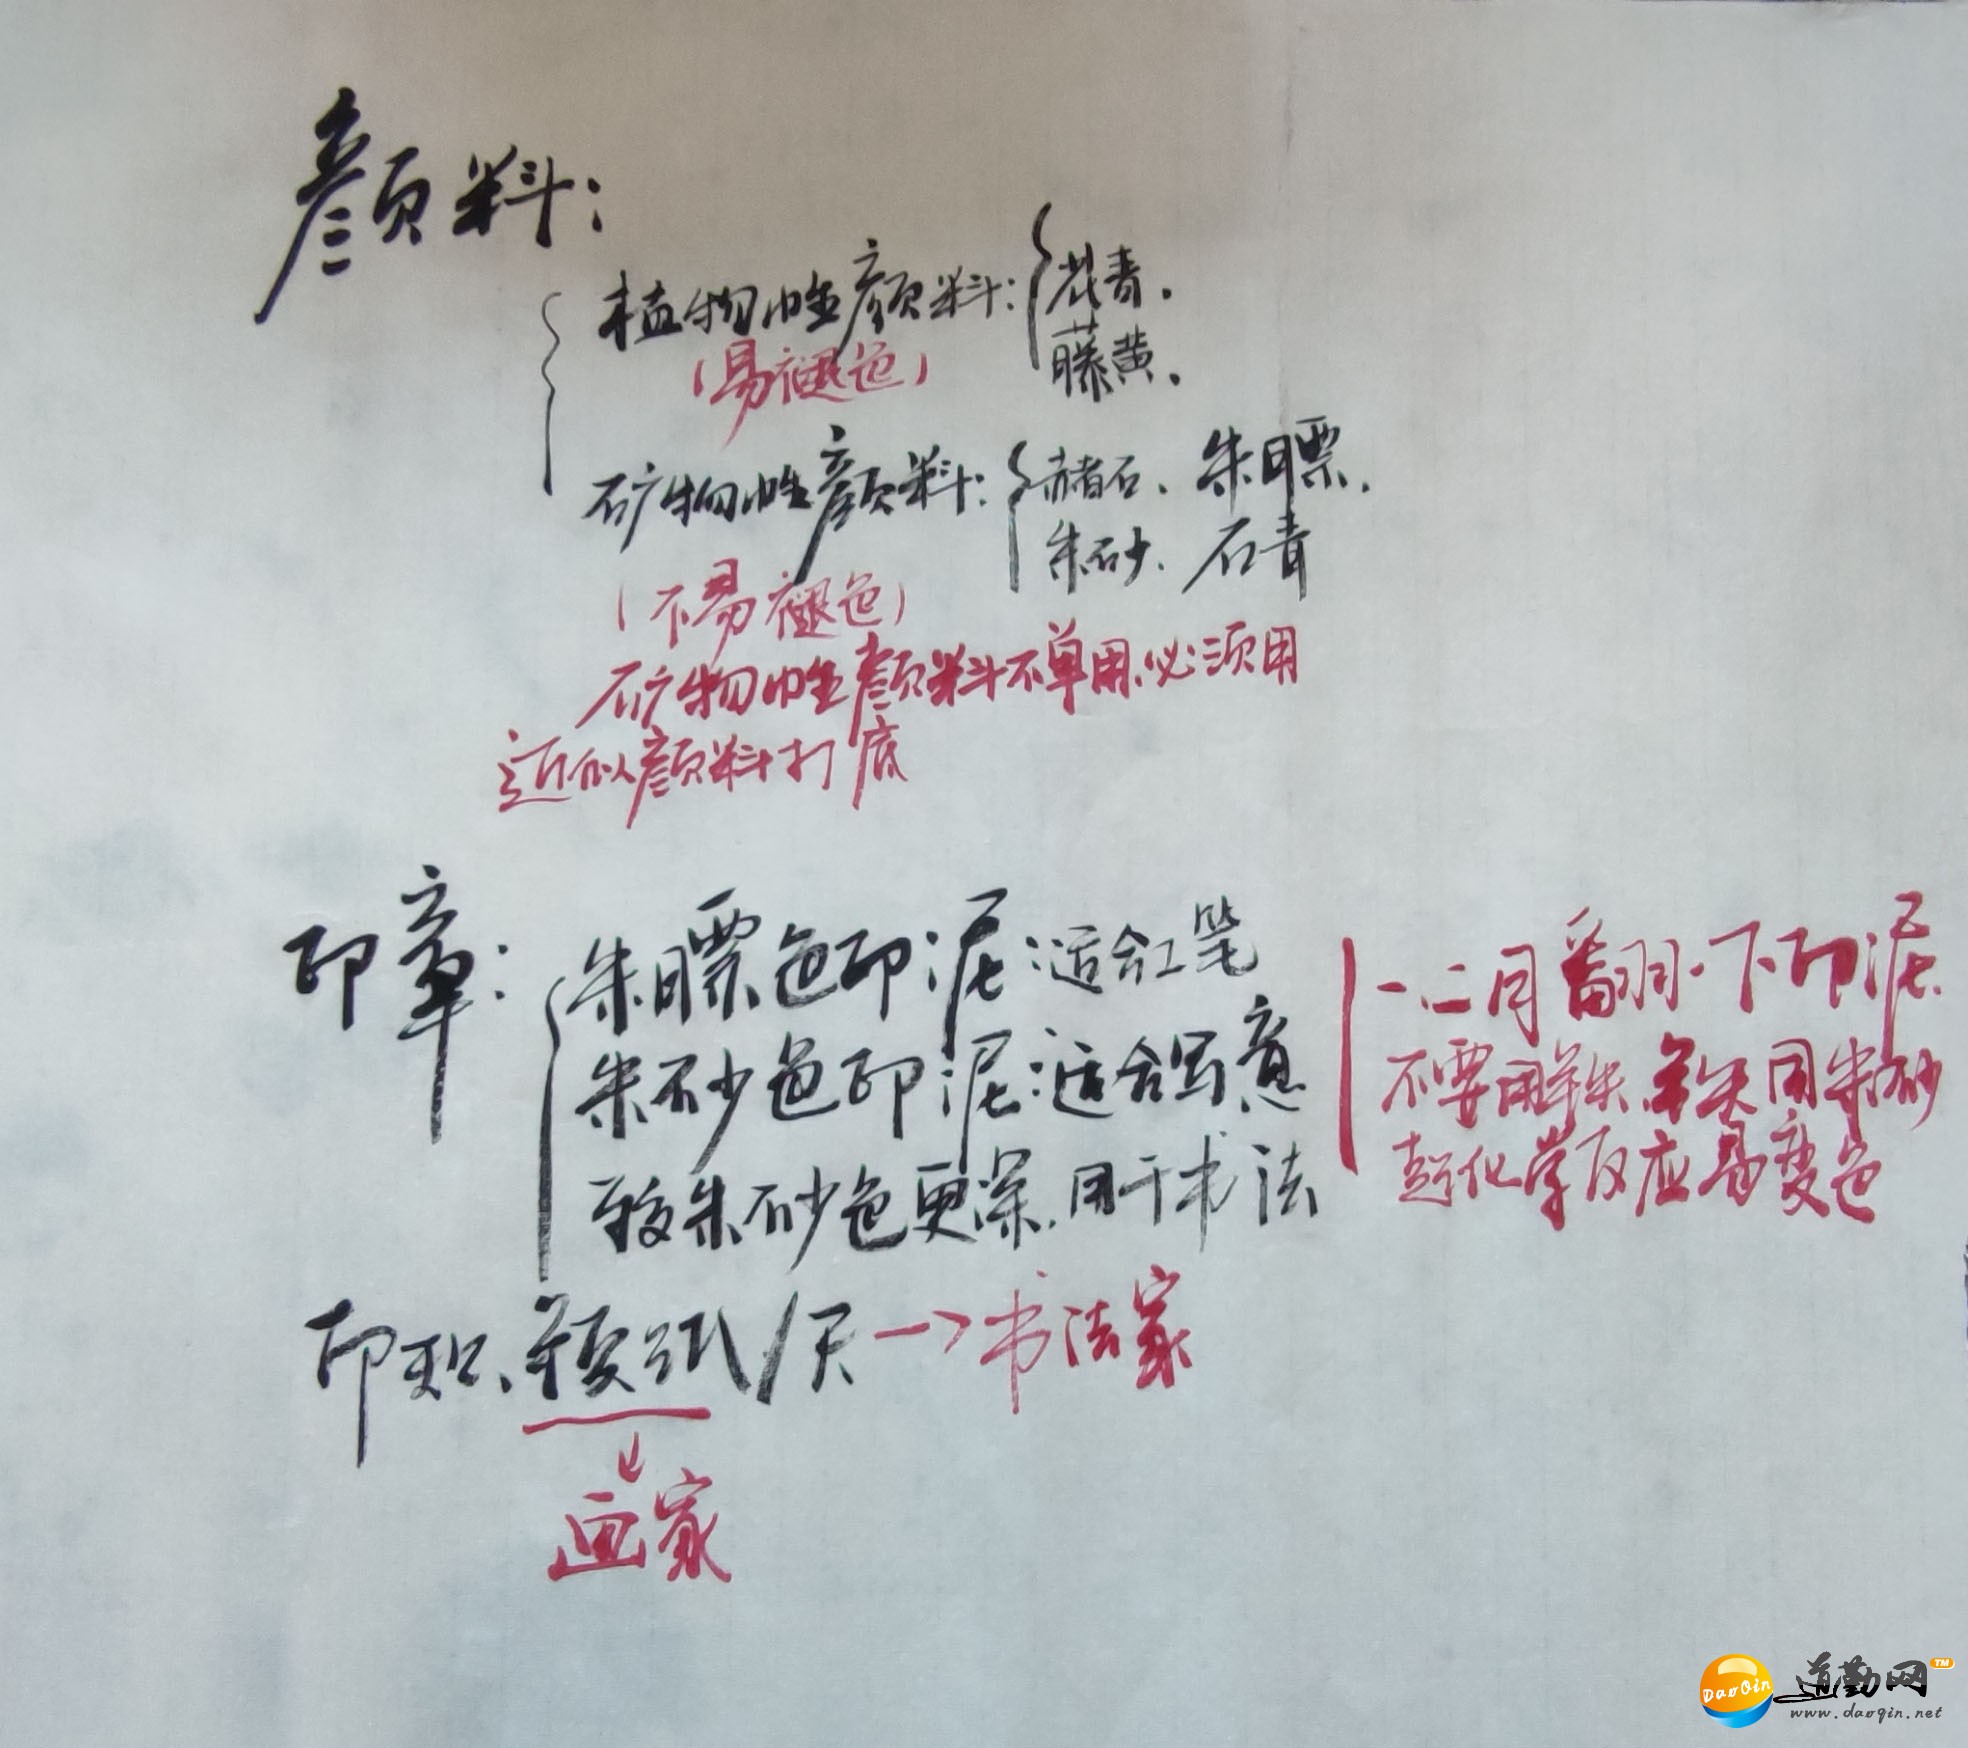 颜料:
植物性颜料: 花青.
(易褪色) 藤黄.
矿物性颜料: 赭石、朱膘.
朱砂、石青
(不易褪色)
矿物性颜料不单用,必须用
近似颜料打底
印章:
朱膘色印泥:适合工笔
朱砂色印泥:适合写意
较朱砂色更深.用于书法
一.二月翻一下印泥.
不要用 朱砂
起化学反应易变色
印 纸/天→书法家
画家
DaoQin 道勤网 TM
www.daoqin.net